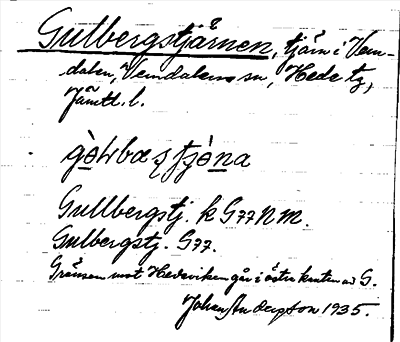 Gulbergstjärnen, tjärn i Vem-
dalen, Vemdalens sn, Hede tg,
Jämtl. l.
Gullbergstj. k G77NM.
Gulbergstj. G77.
Gränsen mot Hedeviken går i östra kanten av G.
Johan Anderson 1935.